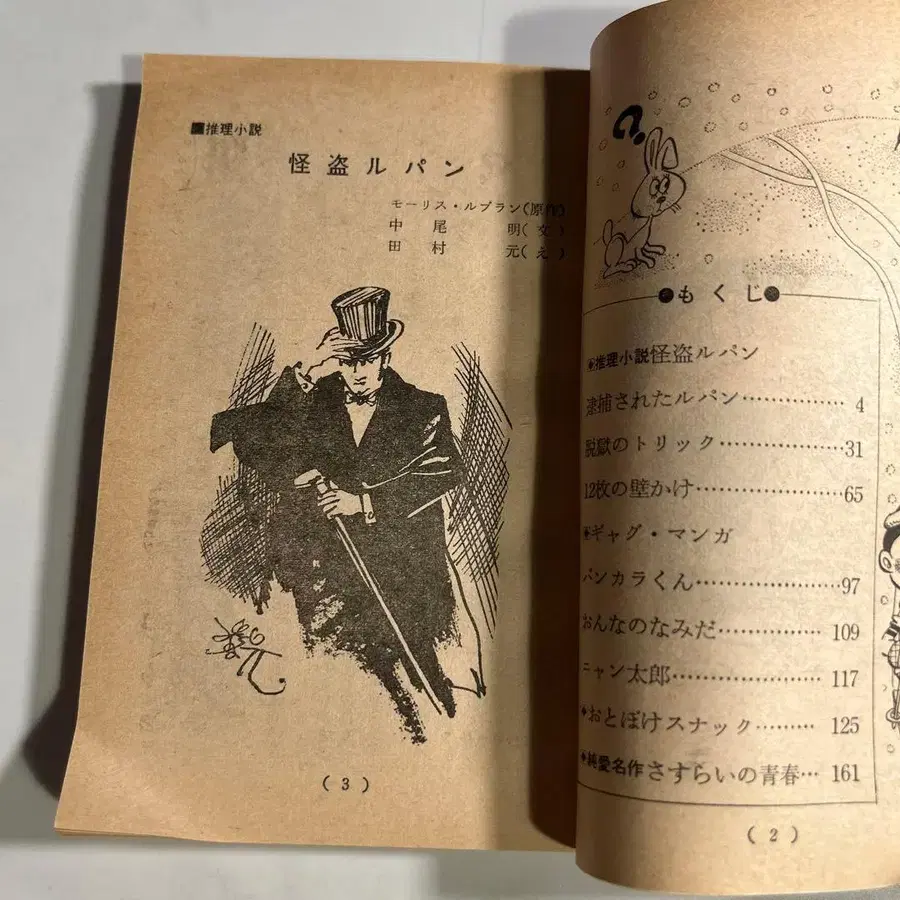 ●もくじ●
◆推理小説怪盗ルパン
逮捕されたルパン……………4
脱獄のトリック………………31
12枚の壁かけ…………………65
◆ギャグ・マンガ
バンカラくん…………………97
おんなのなみだ……………109
ニャン太郎…………………117
◆おとぼけスナック………125
◆純愛名作さすらいの青春…161
(2)
■推理小説
怪盗ルパン
モーリス・ルブラン(原作)
中尾 明(文)
田村 元(え)
(3)